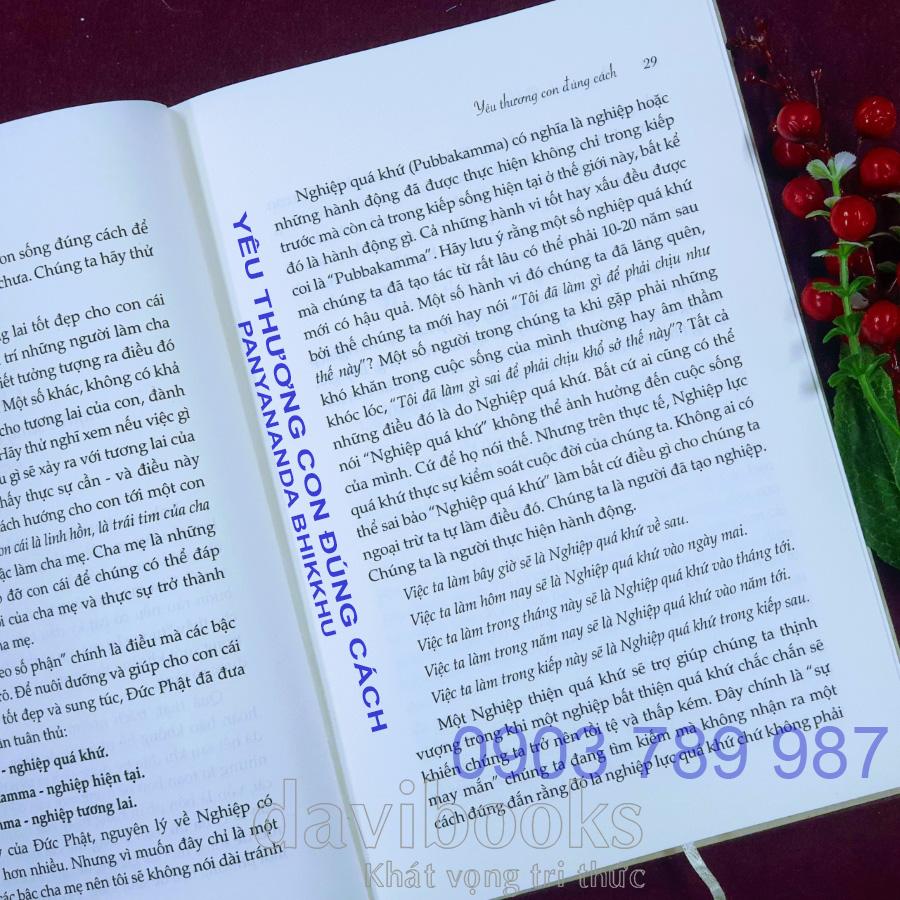 on sống đúng cách để
chưa. Chúng ta hãy thử
g lai tốt đẹp cho con cái
trí những người làm cha
iết tưởng tượng ra điều đó
Một số khác, không có khả
cho tương lai của con, đành
Hãy thử nghĩ xem nếu việc gì
u gì sẽ xảy ra với tương lai của
hấy thực sự cần - và điều này
ách hướng cho con tới một con
on cái là linh hồn, là trái tim của cha
ậc làm cha mẹ. Cha mẹ là những
p đỡ con cái để chúng có thể đáp
i của cha mẹ và thực sự trở thành
a mẹ.
eo số phận” chính là điều mà các bậc
rõ. Để nuôi dưỡng và giúp cho con cái
tốt đẹp và sung túc, Đức Phật đã đưa
ần tuân thủ:
- nghiệp quá khứ.
amma - nghiệp hiện tại.
mma - nghiệp tương lai.
y của Đức Phật, nguyên lý về Nghiệp có
hơn nhiều. Nhưng vì muốn đây chỉ là một
các bậc cha mẹ nên tôi sẽ không nói dài tránh
Yêu thương con đúng cách 29
Nghiệp quá khứ (Pubbakamma) có nghĩa là nghiệp hoặc
những hành động đã được thực hiện không chỉ trong kiếp
trước mà còn cả trong kiếp sống hiện tại ở thế giới này, bất kể
đó là hành động gì. Cả những hành vi tốt hay xấu đều được
coi là “Pubbakamma”. Hãy lưu ý rằng một số nghiệp quá khứ
mà chúng ta đã tạo tác từ rất lâu có thể phải 10-20 năm sau
mới có hậu quả. Một số hành vi đó chúng ta đã lãng quên,
bởi thế chúng ta mới hay nói “Tôi đã làm gì để phải chịu như
thế này”? Một số người trong chúng ta khi gặp phải những
khó khăn trong cuộc sống của mình thường hay âm thầm
khóc lóc, “Tôi đã làm gì sai để phải chịu khổ sở thế này”? Tất cả
những điều đó là do Nghiệp quá khứ. Bất cứ ai cũng có thể
nói “Nghiệp quá khứ” không thể ảnh hưởng đến cuộc sống
của mình. Cứ để họ nói thế. Nhưng trên thực tế, Nghiệp lực
quá khứ thực sự kiểm soát cuộc đời của chúng ta. Không ai có
thể sai bảo “Nghiệp quá khứ” làm bất cứ điều gì cho chúng ta
ngoại trừ ta tự làm điều đó. Chúng ta là người đã tạo nghiệp.
Chúng ta là người thực hiện hành động.
Việc ta làm bây giờ sẽ là Nghiệp quá khứ về sau.
Việc ta làm hôm nay sẽ là Nghiệp quá khứ vào ngày mai.
Việc ta làm trong tháng này sẽ là Nghiệp quá khứ vào tháng tới.
Việc ta làm trong năm nay sẽ là Nghiệp quá khứ vào năm tới.
Việc ta làm trong kiếp này sẽ là Nghiệp quá khứ trong kiếp sau.
Một Nghiệp thiện quá khứ sẽ trợ giúp chúng ta thịnh
vượng trong khi một nghiệp bất thiện quá khứ chắc chắn sẽ
khiến chúng ta trở nên tồi tệ và thấp kém. Đây chính là “sự
may mắn” chúng ta đang tìm kiếm mà không nhận ra một
cách đúng đắn rằng đó là nghiệp lực quá khứ chứ không phải
YÊU THƯƠNG CON ĐÚNG CÁCH
PANYANANDA BHIKKHU
0903 789 987
davibooks
Khát vọng tri thức